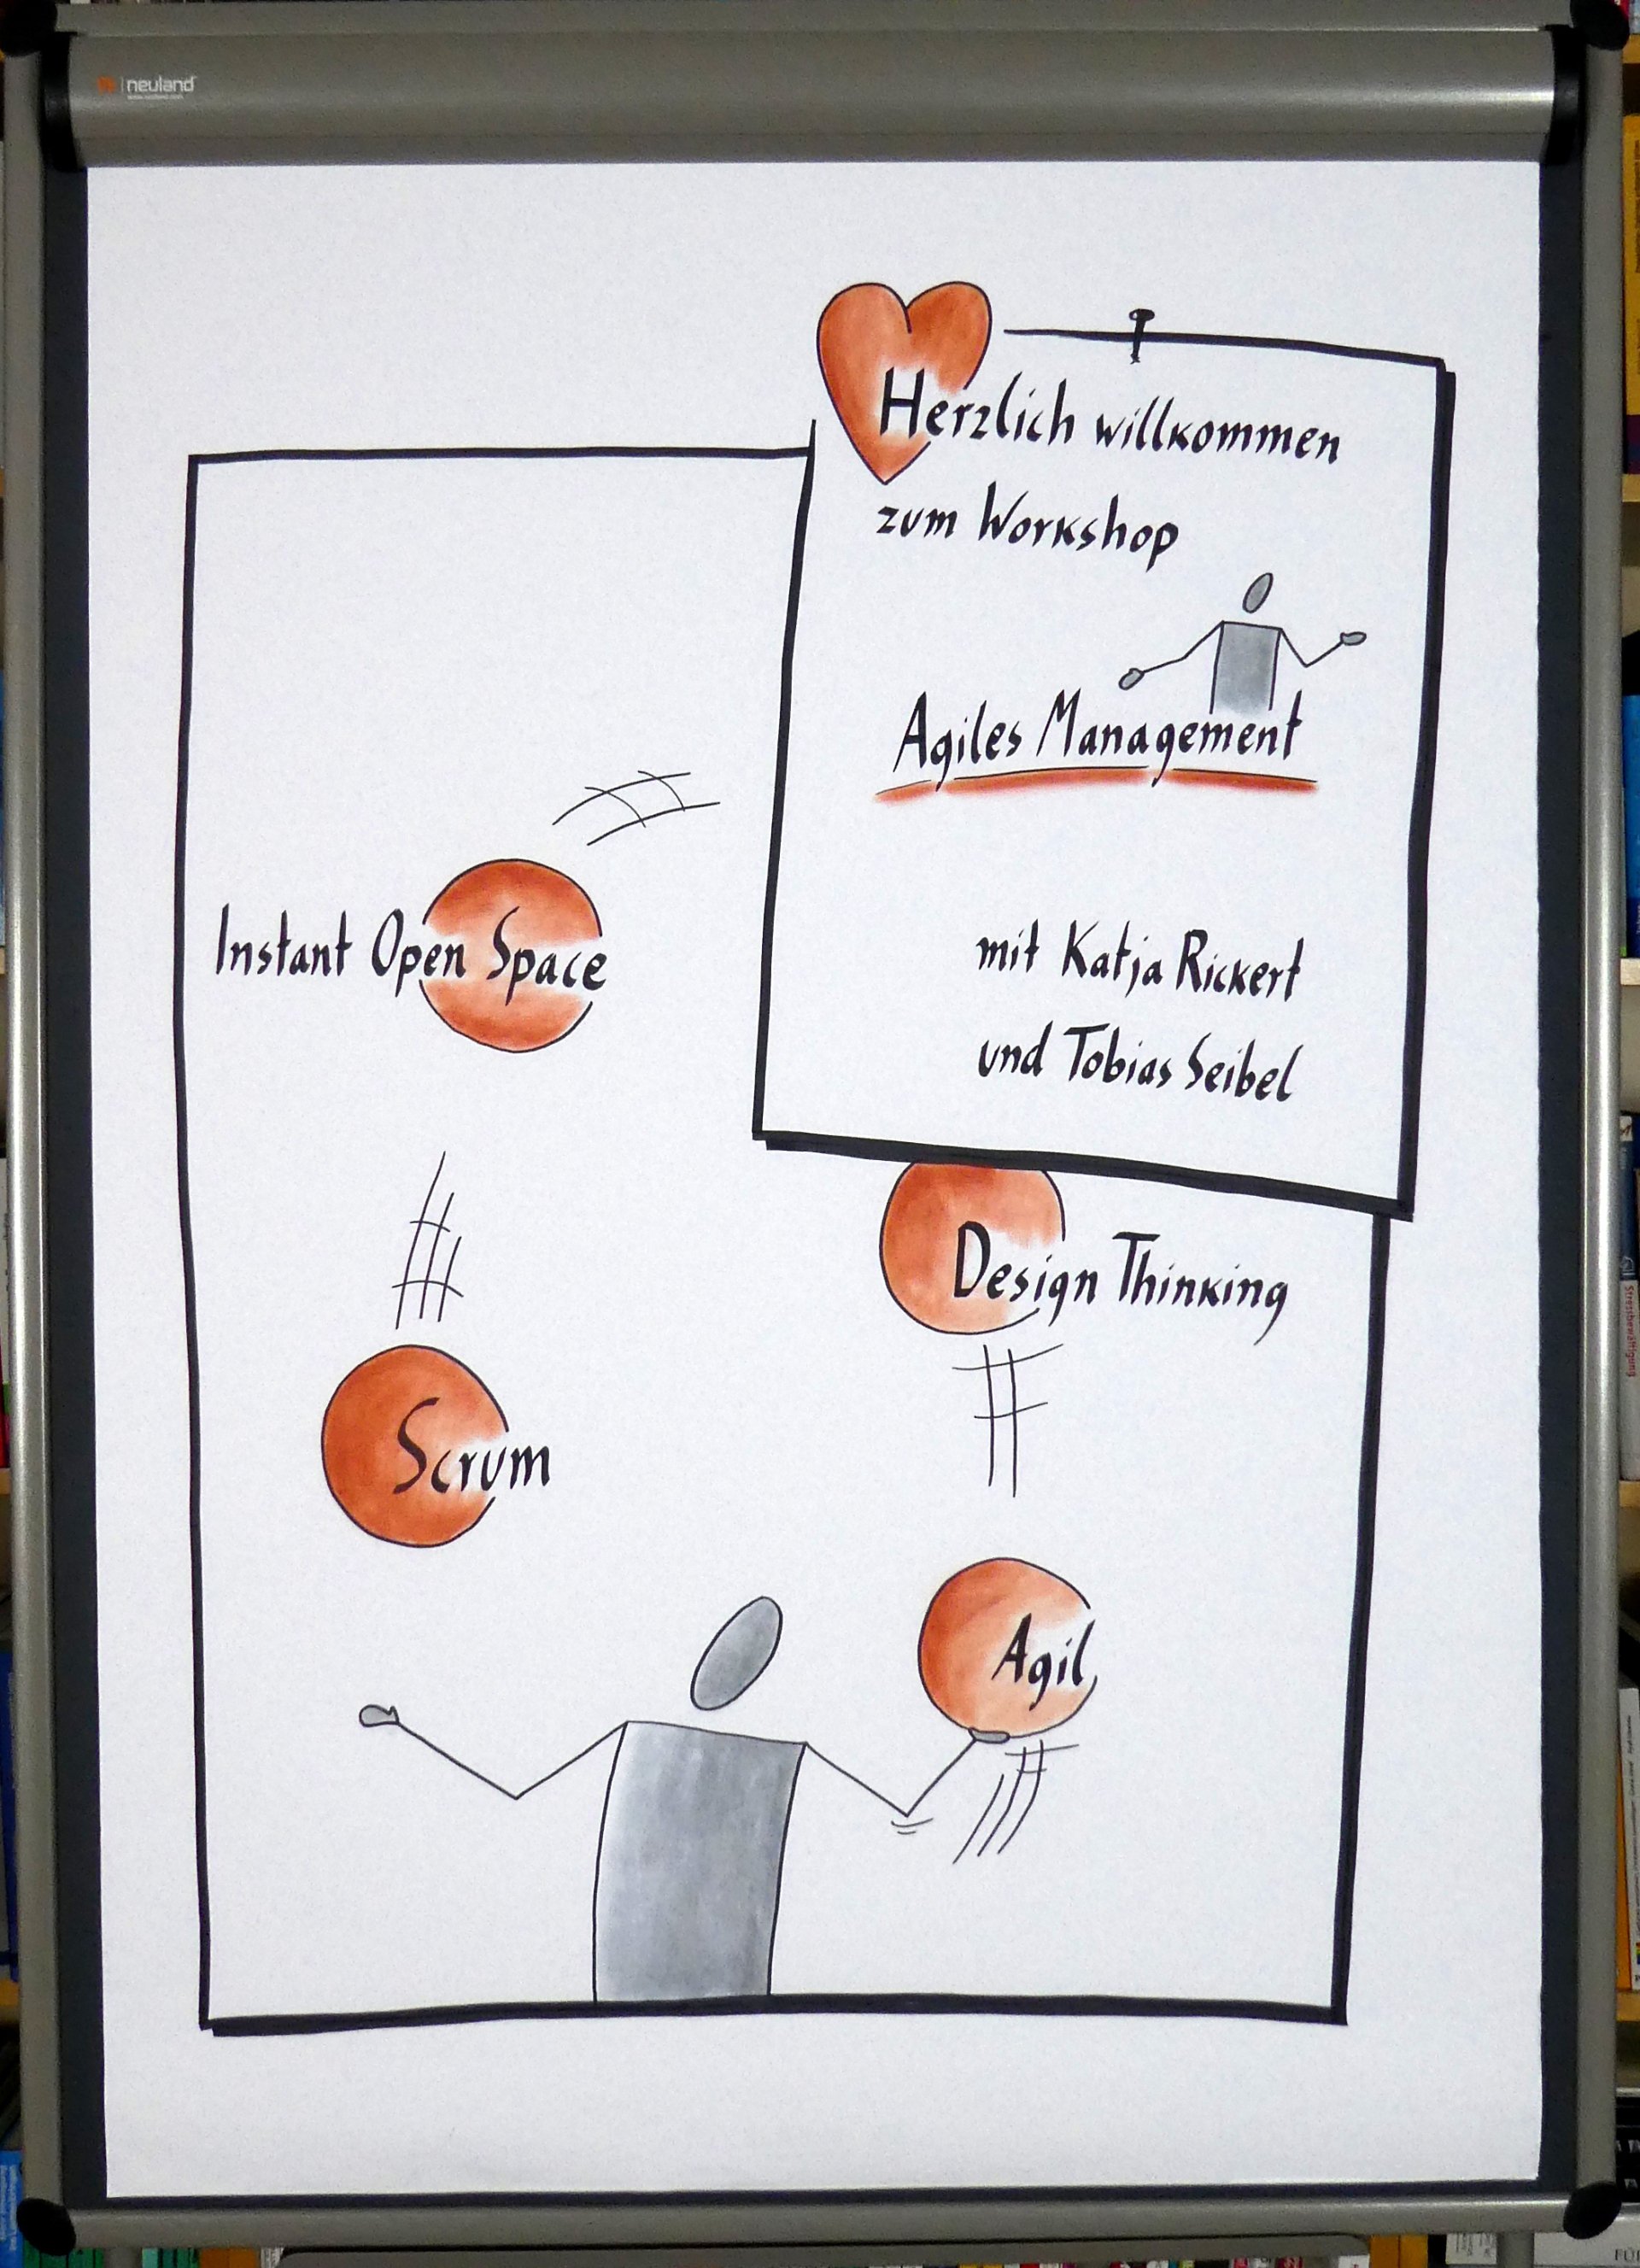 neuland
Herzlich willkommen
zum Workshop
Agiles Management
mit Katja Rickert
und Tobias Seibel
Instant Open Space
Design Thinking
Scrum
Agil
Stressbewältigung